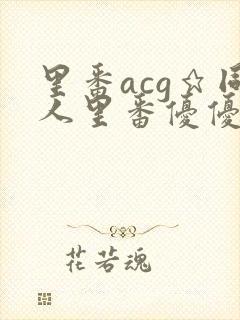 里番acg☆同
人里番優優
花若魂